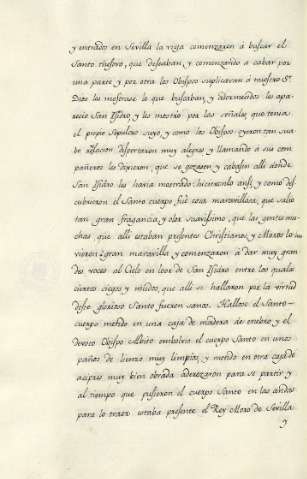 y entrado en Sevilla la vega comenzaron á buscar el
Santo thesoro, que deseaban, y comenzando á cabar por
una parte, y por otra los Obispos suplicavan á nuestro Sr.
Dios les mostrase lo que buscaban, y adormecidos les apa-
reció San Isidro, y les mostró por las señales que tenia
el propio Sepulcro suyo, y como los Obispos oyeron tan sua-
be relacion despertaron muy alegres, y llamando á sus com-
pañeros les dixeron, que se gozasen y cabasen alli donde
San Isidro les havia mostrado: hicieronlo ansi, y como des-
cubrieron el Santo cuerpo fué otra maravillosa, que salio
tan gran fragancia, y olor suavissimo, que las gentes mu-
chas, que alli estaban presentes Christianos, y Moros lo
vieron à gran maravilla y comenzaron á dar muy gran-
des voces al Cielo en loor de San Isidro entre los quales
ciertos ciegos y tollidos, que alli se hallaron por la virtud
deste glorioso Santo fueron sanos. Hallose el Santo
cuerpo metido en una caja de madera de enebro y el
devoto Obispo Albito embolvió el cuerpo Santo en unos
paños de lienzo muy limpios, y metido en otra caja de
acipres muy bien obrada aderezaron para se partir, y
al tiempo que pusieron el cuerpo Santo en las andas
para lo traer estaba presente el Rey Moro de Sevilla
y